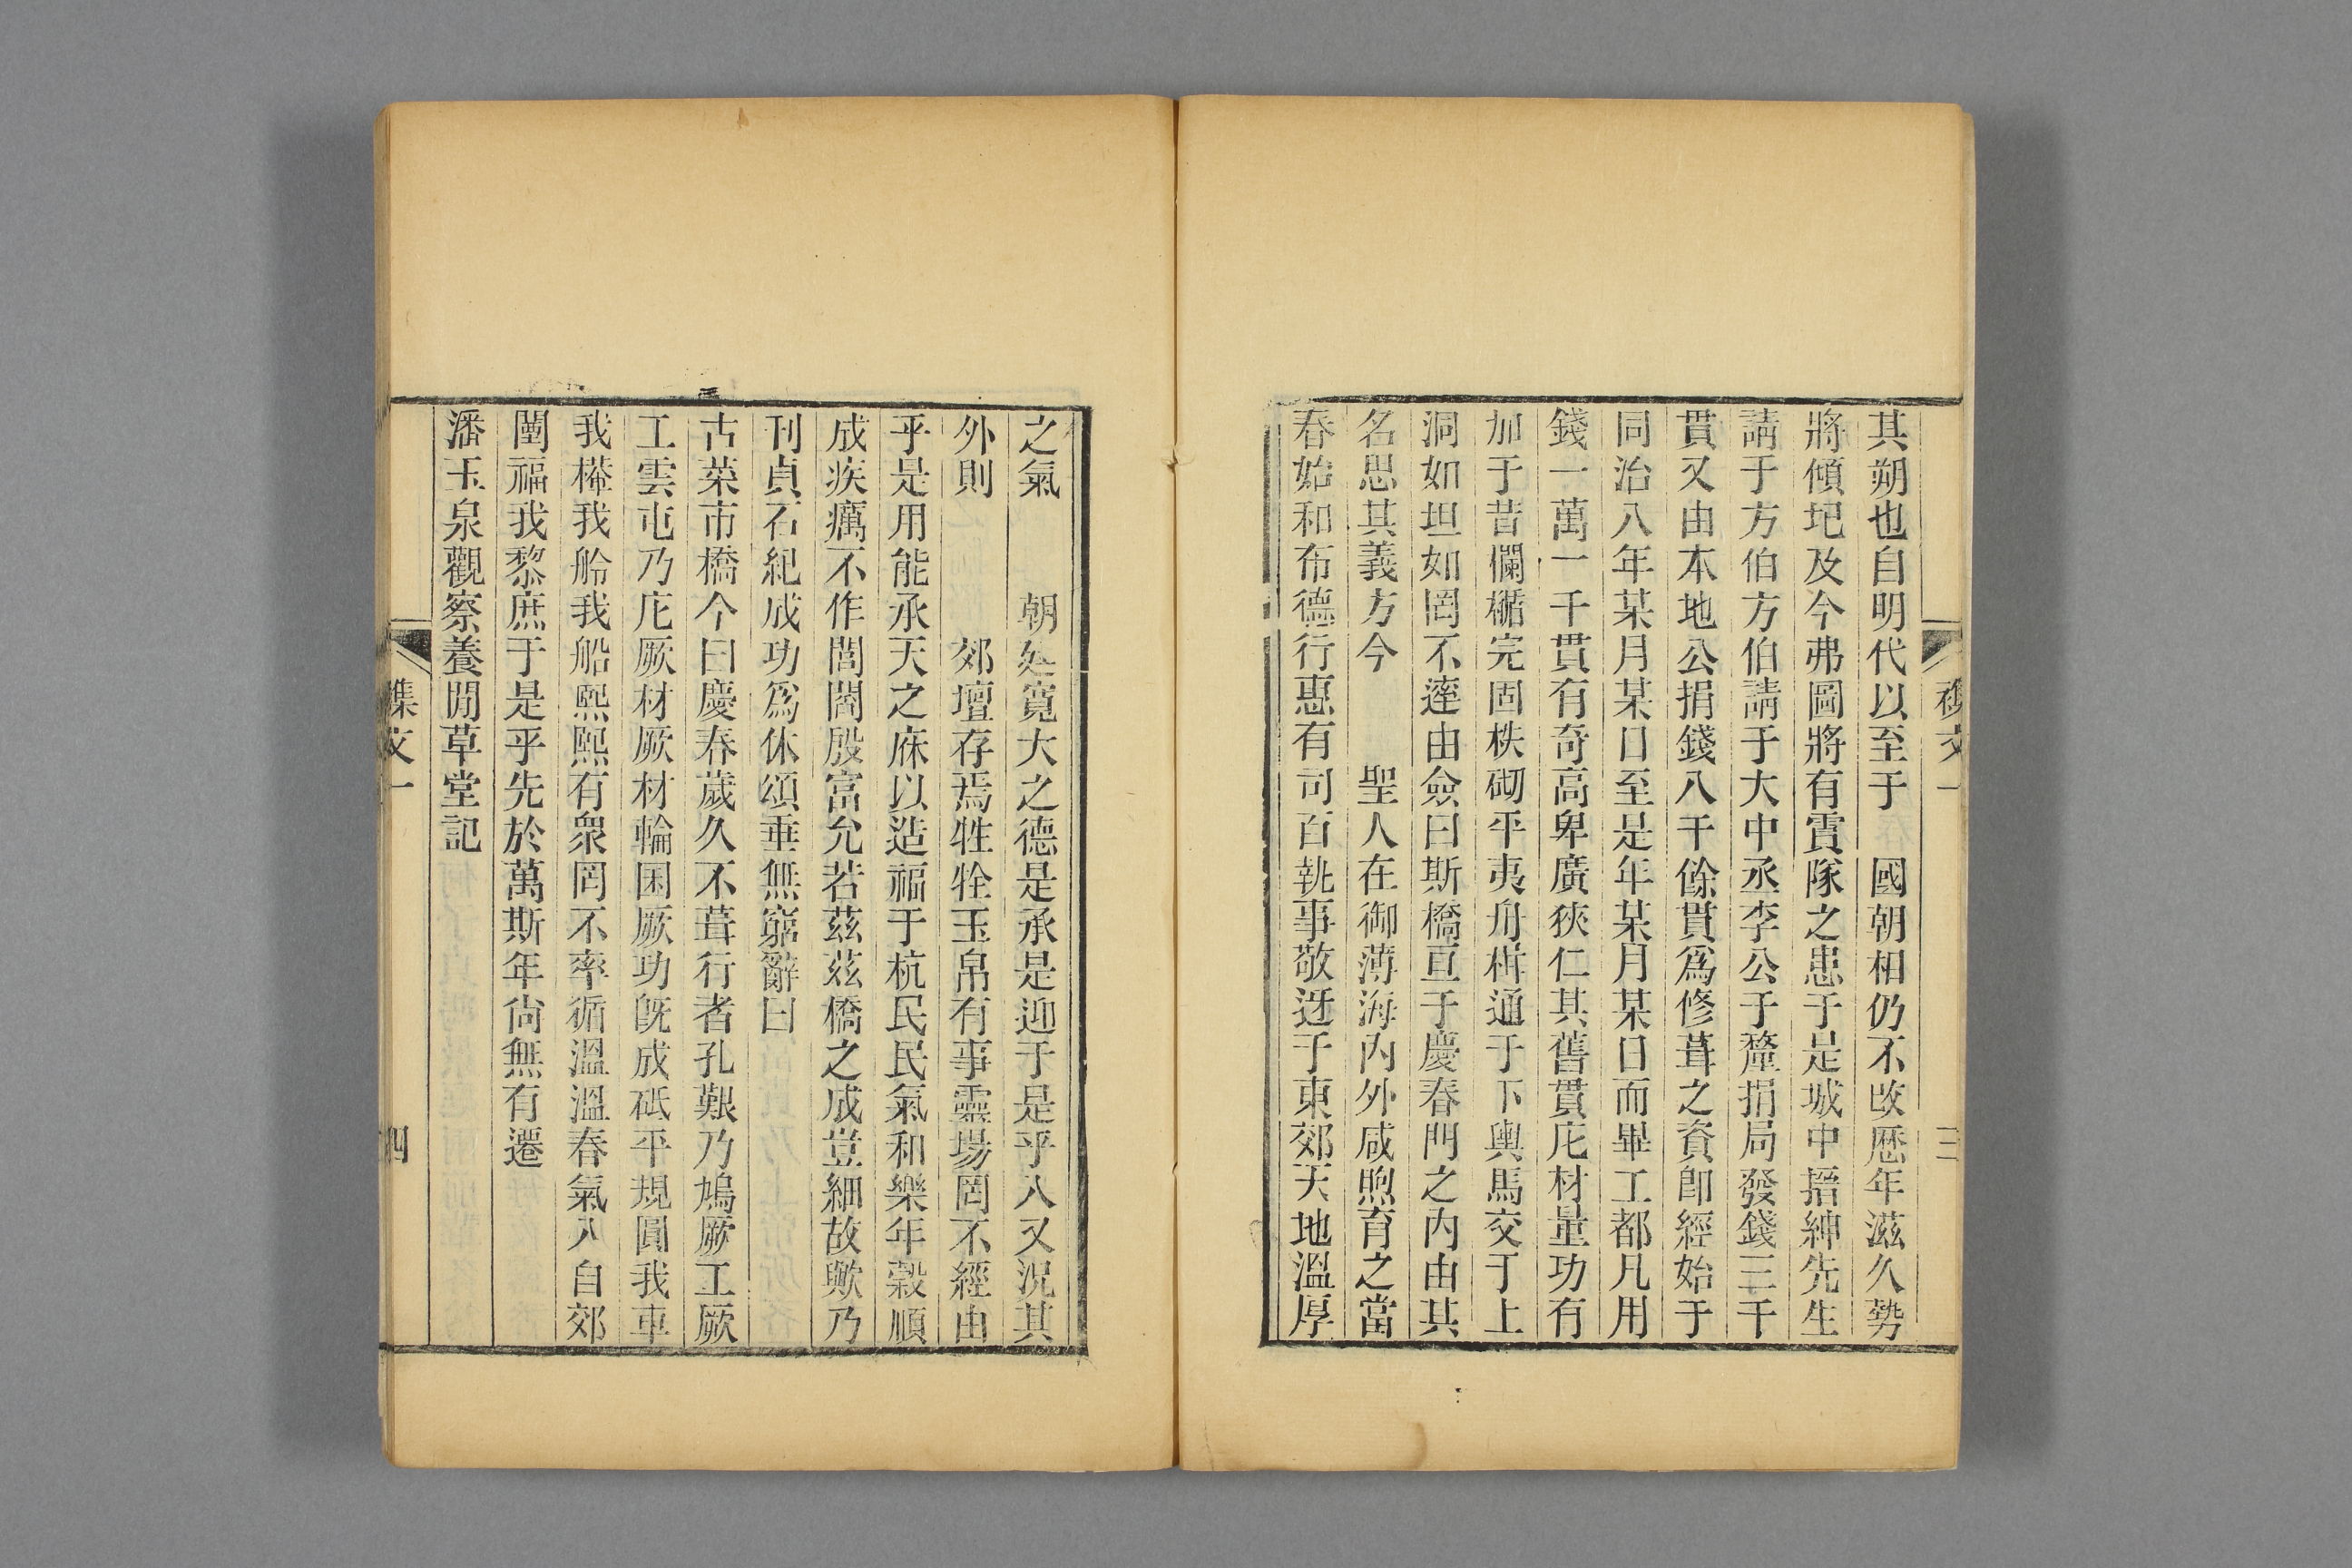 襍文一
三
其朔也自明代以至于　國朝相仍不改歷年滋久勢
將傾圮及今弗圖將有霣隊之患于是城中搢紳先生
請于方伯方伯請于大中丞李公于釐捐局發錢三千
貫又由本地公捐錢八千餘貫爲修葺之資卽經始于
同治八年某月某日至是年某月某日而畢工都凡用
錢一萬一千貫有奇高卑廣狹仁其舊貫庀材量功有
加于昔欄楯完固柣砌平夷舟楫通于下輿馬交于上
洞如坦如罔不達由僉曰斯橋亘于慶春門之內由其
名思其義方今　聖人在御薄海內外咸煦育之當
春始和布德行惠有司百執事敬迓于東郊天地溫厚
之氣　朝廷寬大之德是承是迎于是乎入又況其
外則　郊壇存焉牲牷玉帛有事靈場罔不經由
乎是用能承天之庥以造福于杭民民氣和樂年穀順
成疾癘不作閭閻殷富允若茲茲橋之成豈細故歟乃
刊貞石紀成功爲休頌垂無窮辭曰
古菜市橋今曰慶春歲久不葺行者孔艱乃鳩厥工厥
工雲屯乃庀厥材厥材輪囷厥功旣成砥平規圓我車
我檋我舲我船熙熙有衆罔不率循溫溫春氣入自郊
闉福我黎庶于是乎先於萬斯年尙無有遷
潘玉泉觀察養閒草堂記
襍文一
四